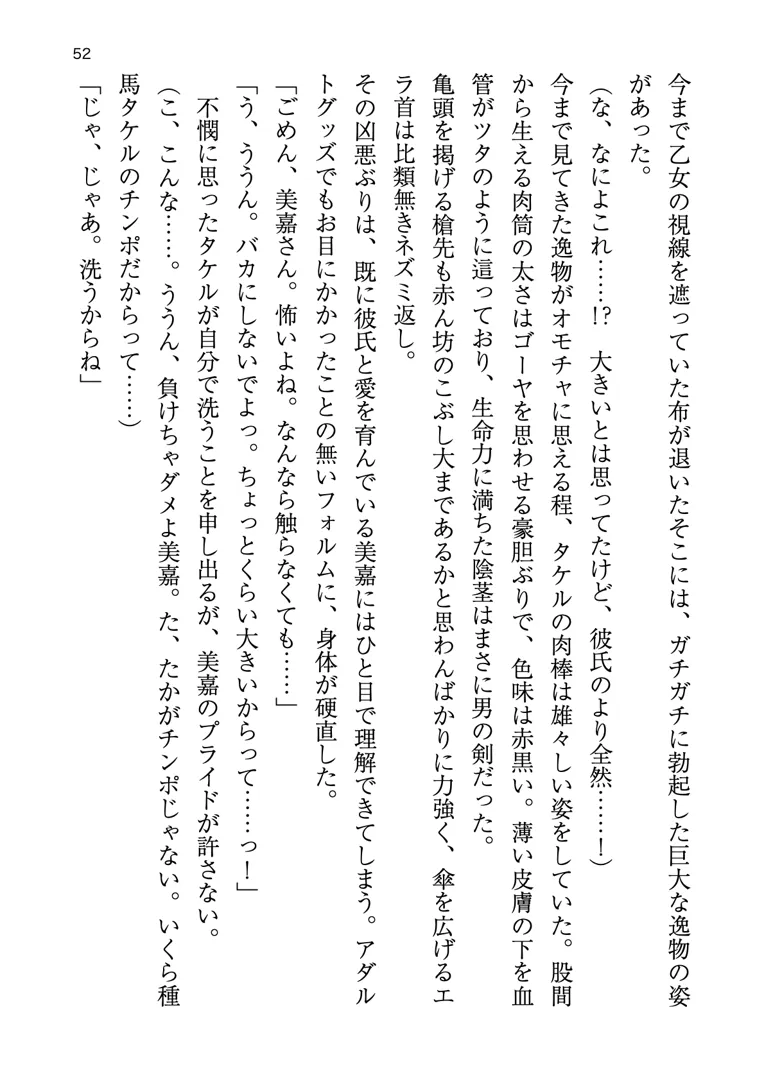 52
今まで乙女の視線を遮っていた布が退いたそこには、ガチガチに勃起した巨大な逸物の姿
があった。
（な、なによこれ……!?　大きいとは思ってたけど、彼氏のより全然……！）
今まで見てきた逸物がオモチャに思える程、タケルの肉棒は雄々しい姿をしていた。股間
から生える肉筒の太さはゴーヤを思わせる豪胆ぶりで、色味は赤黒い。薄い皮膚の下を血
管がツタのように這っており、生命力に満ちた陰茎はまさに男の剣だった。
亀頭を掲げる槍先も赤ん坊のこぶし大まであるかと思わんばかりに力強く、傘を広げるエ
ラ首は比類無きネズミ返し。
その凶悪ぶりは、既に彼氏と愛を育んでいる美嘉にはひと目で理解できてしまう。アダル
トグッズでもお目にかかったことの無いフォルムに、身体が硬直した。
「ごめん、美嘉さん。怖いよね。なんなら触らなくても……」
「う、ううん。バカにしないでよっ。ちょっとくらい大きいからって……っ！」
　不憫に思ったタケルが自分で洗うことを申し出るが、美嘉のプライドが許さない。
（こ、こんな……。ううん、負けちゃダメよ美嘉。た、たかがチンポじゃない。いくら種
馬タケルのチンポだからって……）
「じゃ、じゃあ。洗うからね」